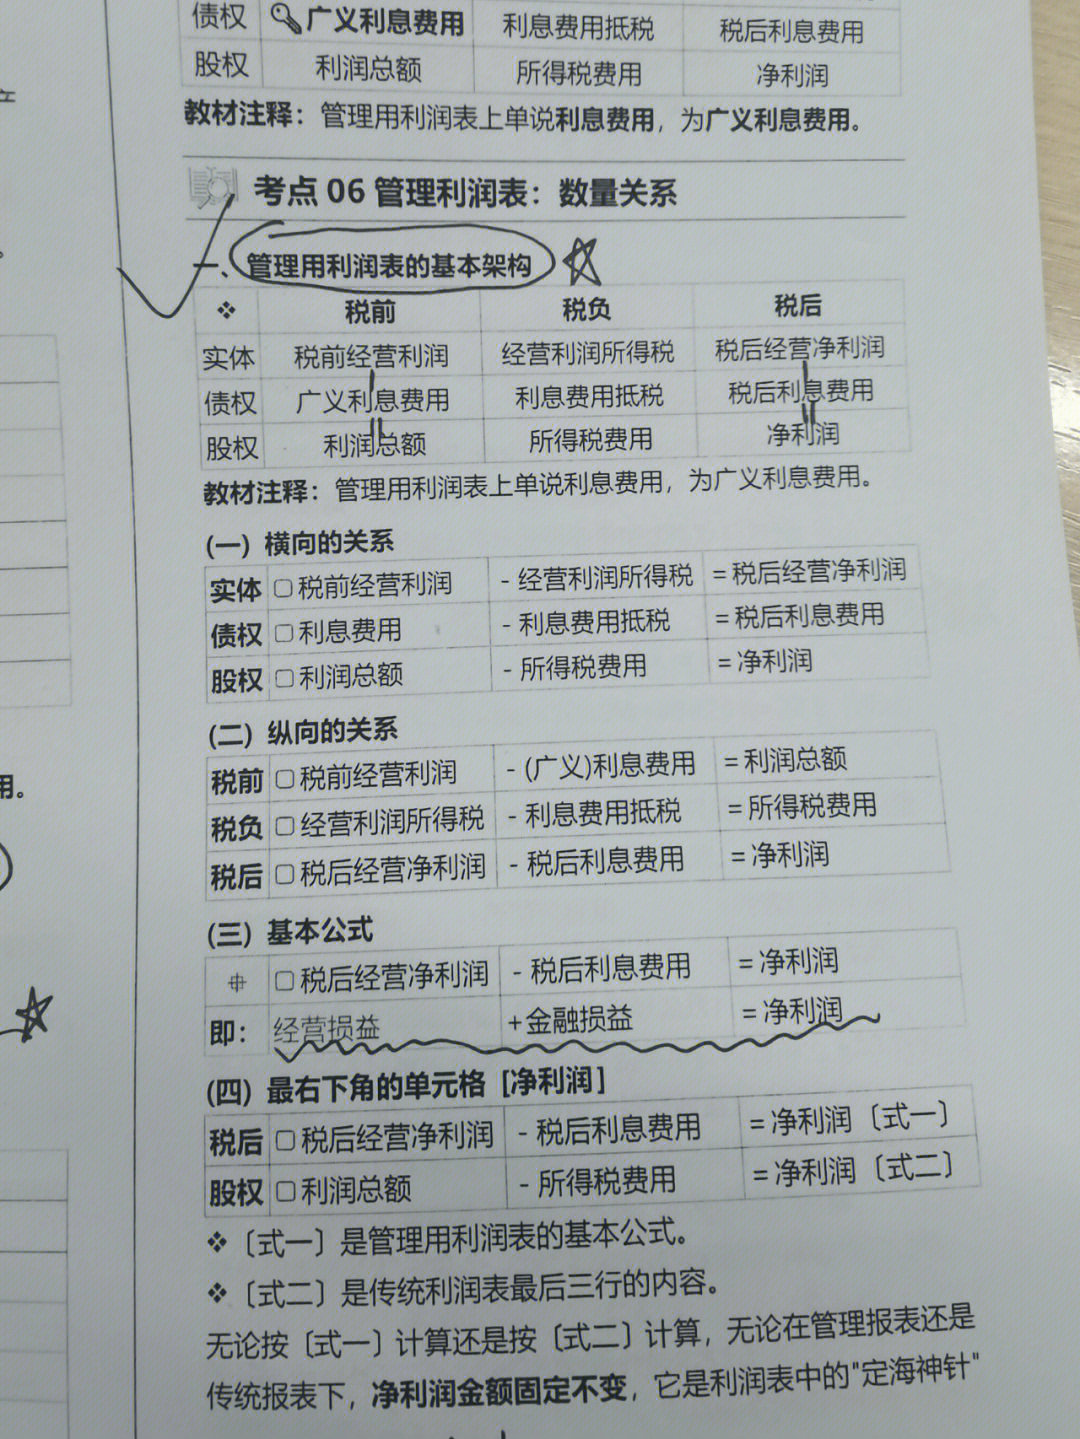 债权 广义利息费用 利息费用抵税 税后利息费用
股权 利润总额 所得税费用 净利润
教材注释：管理用利润表上单说利息费用，为广义利息费用。
考点 06 管理利润表：数量关系
一、管理用利润表的基本架构
❖ 税前 税负 税后
实体 税前经营利润 经营利润所得税 税后经营净利润
债权 广义利息费用 利息费用抵税 税后利息费用
股权 利润总额 所得税费用 净利润
教材注释：管理用利润表上单说利息费用，为广义利息费用。
(一) 横向的关系
实体 税前经营利润 - 经营利润所得税 = 税后经营净利润
债权 利息费用 - 利息费用抵税 = 税后利息费用
股权 利润总额 - 所得税费用 = 净利润
(二) 纵向的关系
税前 税前经营利润 - (广义)利息费用 = 利润总额
税负 经营利润所得税 - 利息费用抵税 = 所得税费用
税后 税后经营净利润 - 税后利息费用 = 净利润
(三) 基本公式
税后经营净利润 - 税后利息费用 = 净利润
即： 经营损益 +金融损益 = 净利润
(四) 最右下角的单元格 [净利润]
税后 税后经营净利润 - 税后利息费用 = 净利润〔式一〕
股权 利润总额 - 所得税费用 = 净利润〔式二〕
❖〔式一〕是管理用利润表的基本公式。
❖〔式二〕是传统利润表最后三行的内容。
无论按〔式一〕计算还是按〔式二〕计算，无论在管理报表还是
传统报表下，净利润金额固定不变，它是利润表中的"定海神针"
产
用。